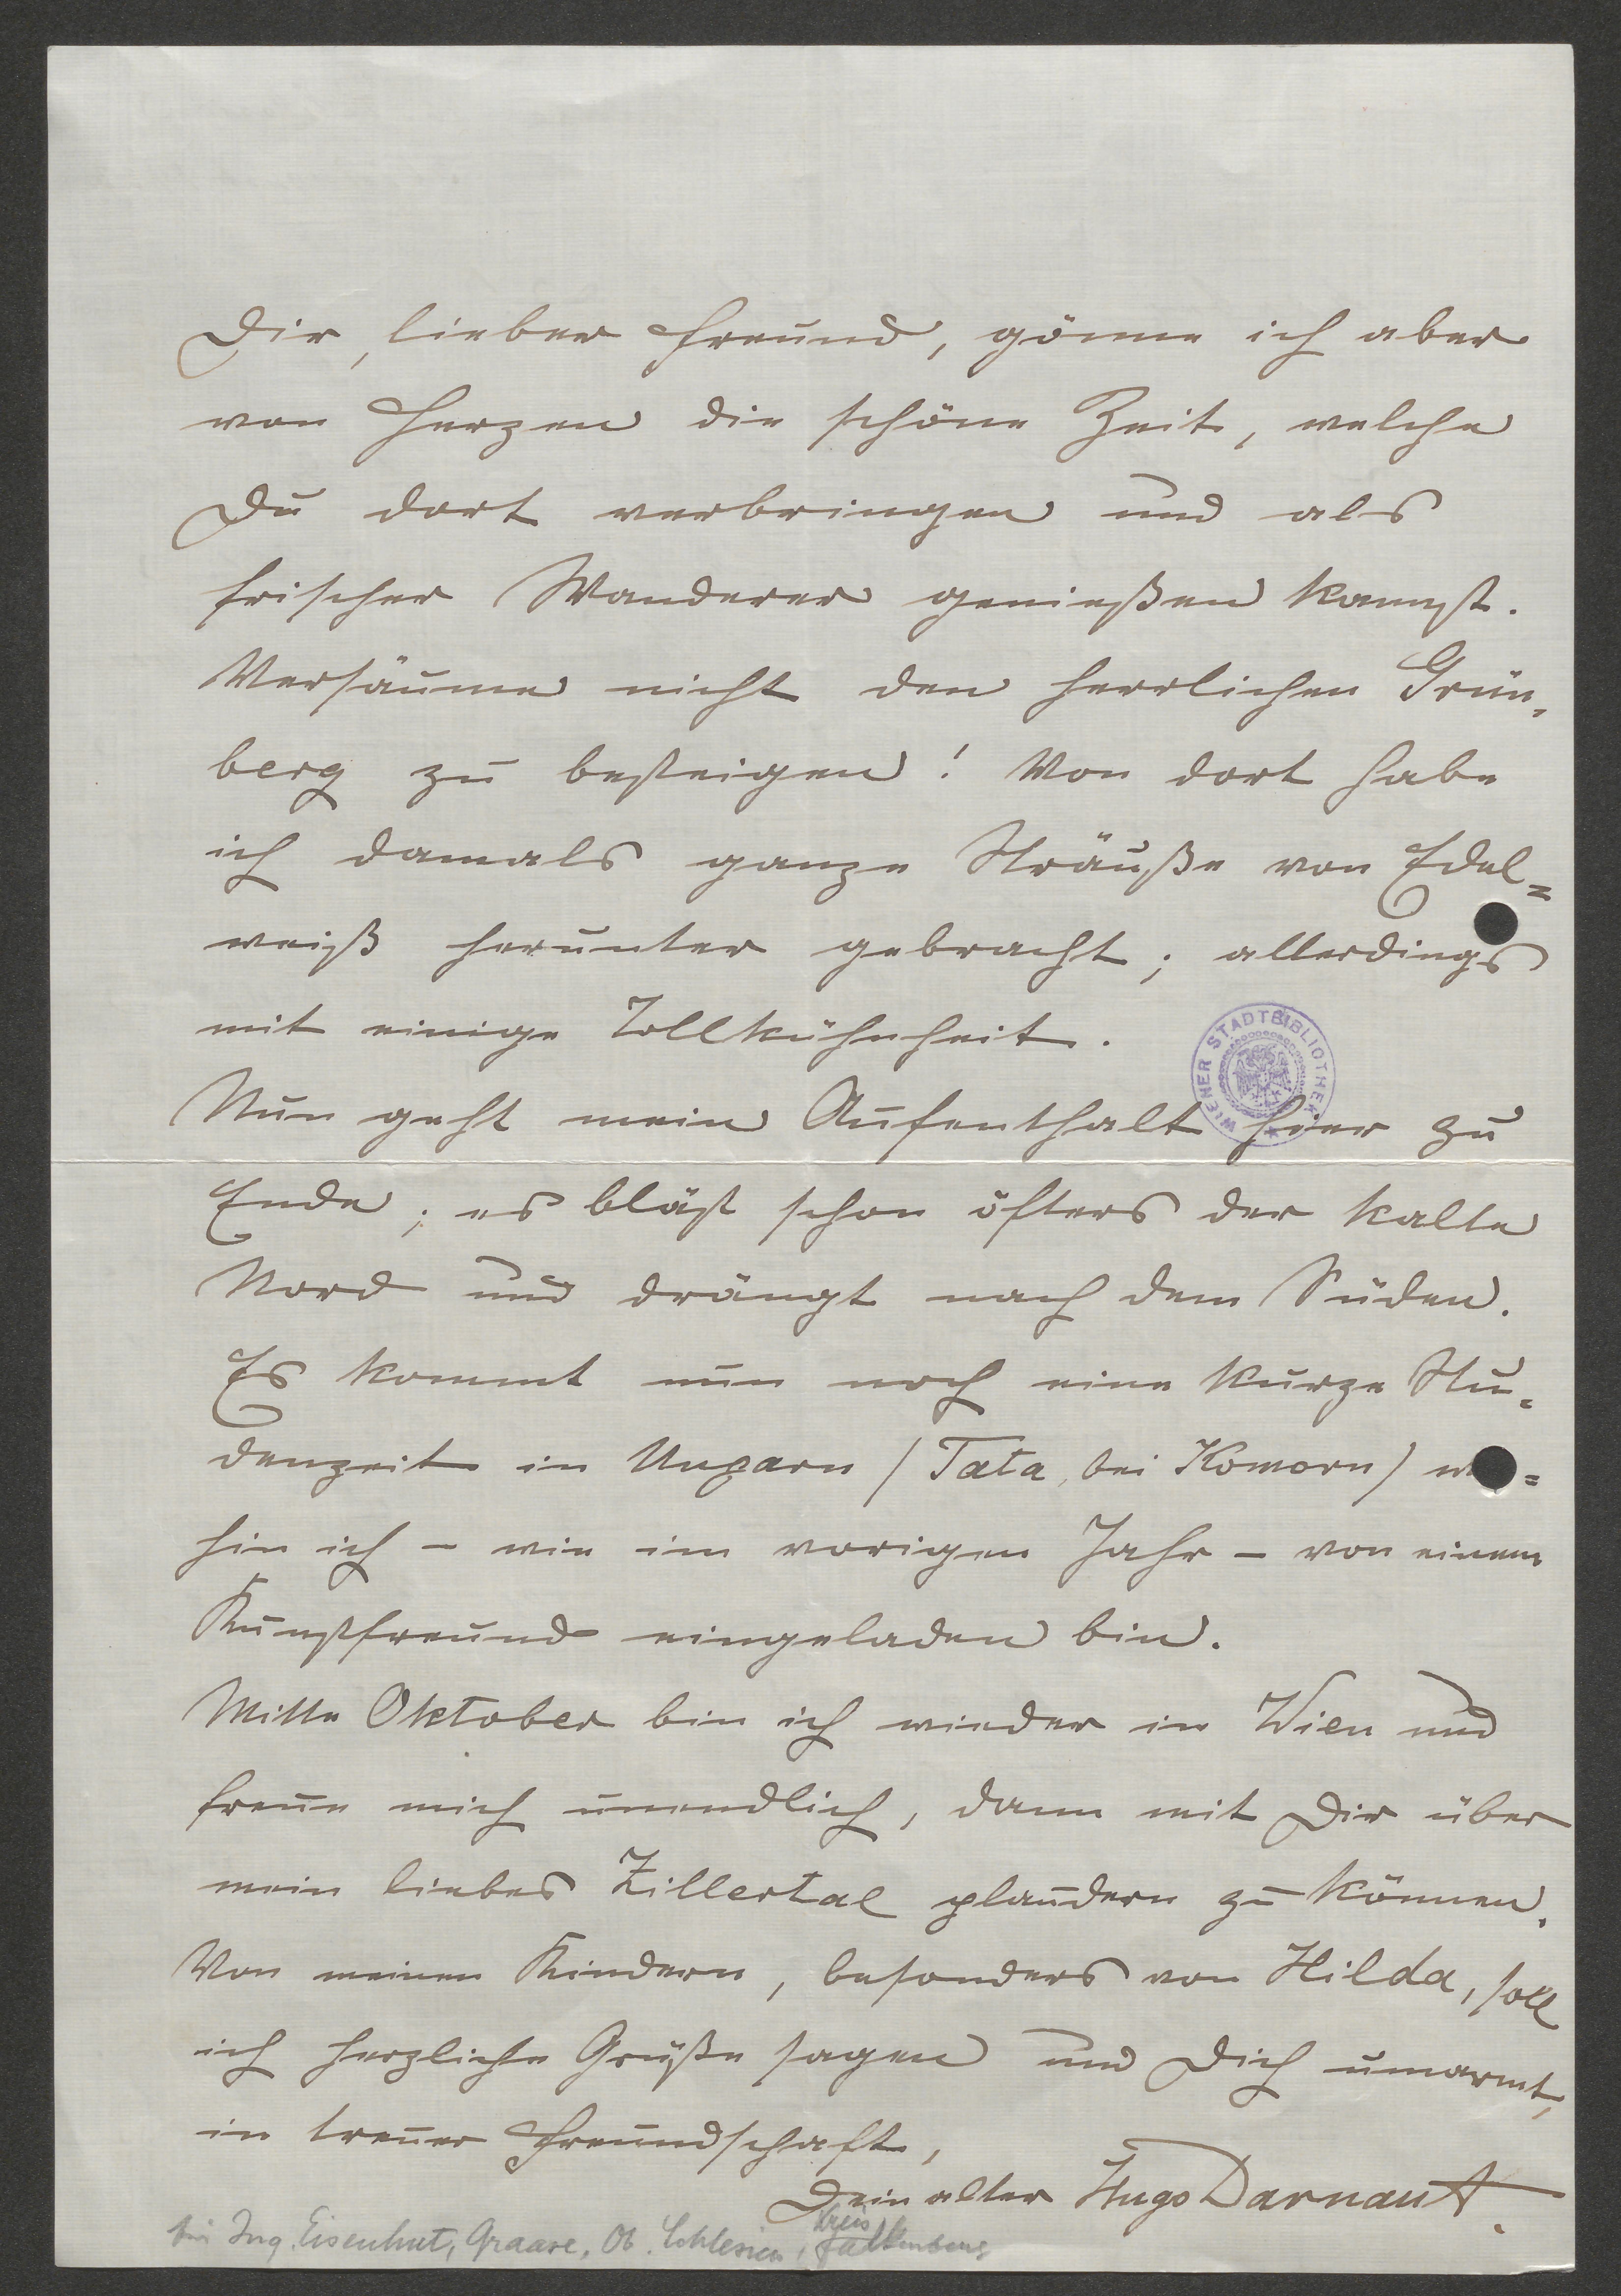 Dir, lieber Freund, gönne ich aber
von Herzen die schöne Zeit, welche
Du dort verbringen und als
frischer Wanderer genießen kannst.
Versäume nicht den herrlichen Grün-
berg zu besteigen! Von dort habe
ich damals ganze Sträuße von Edel=
weiß herunter gebracht; allerdings
mit einige Tollkühnheit.
WIENER STADTBIBLIOTHEK
Nun geht mein Aufenthalt hier zu
Ende; es bläst schon öfters der kalte
Nord und drängt nach dem Süden.
Es kommt nun noch eine kurze Stu=
denzeit in Ungarn (Tata, bei Komorn) wo=
hin ich – wie im vorigen Jahr – von einem
Kunstfreund eingeladen bin.
Mitte Oktober bin ich wieder in Wien und
freue mich unendlich, dann mit Dir über
mein liebes Zillertal plaudern zu können.
Von meinen Kindern, besonders von Hilda, soll
ich herzliche Grüße sagen und Dich umarmt,
in treuer Freundschaft,
Dein alter Hugo Darnaut.
bei Ing. Eisenhut, Graase, Ob. Schlesien, Kreis Falkenberg